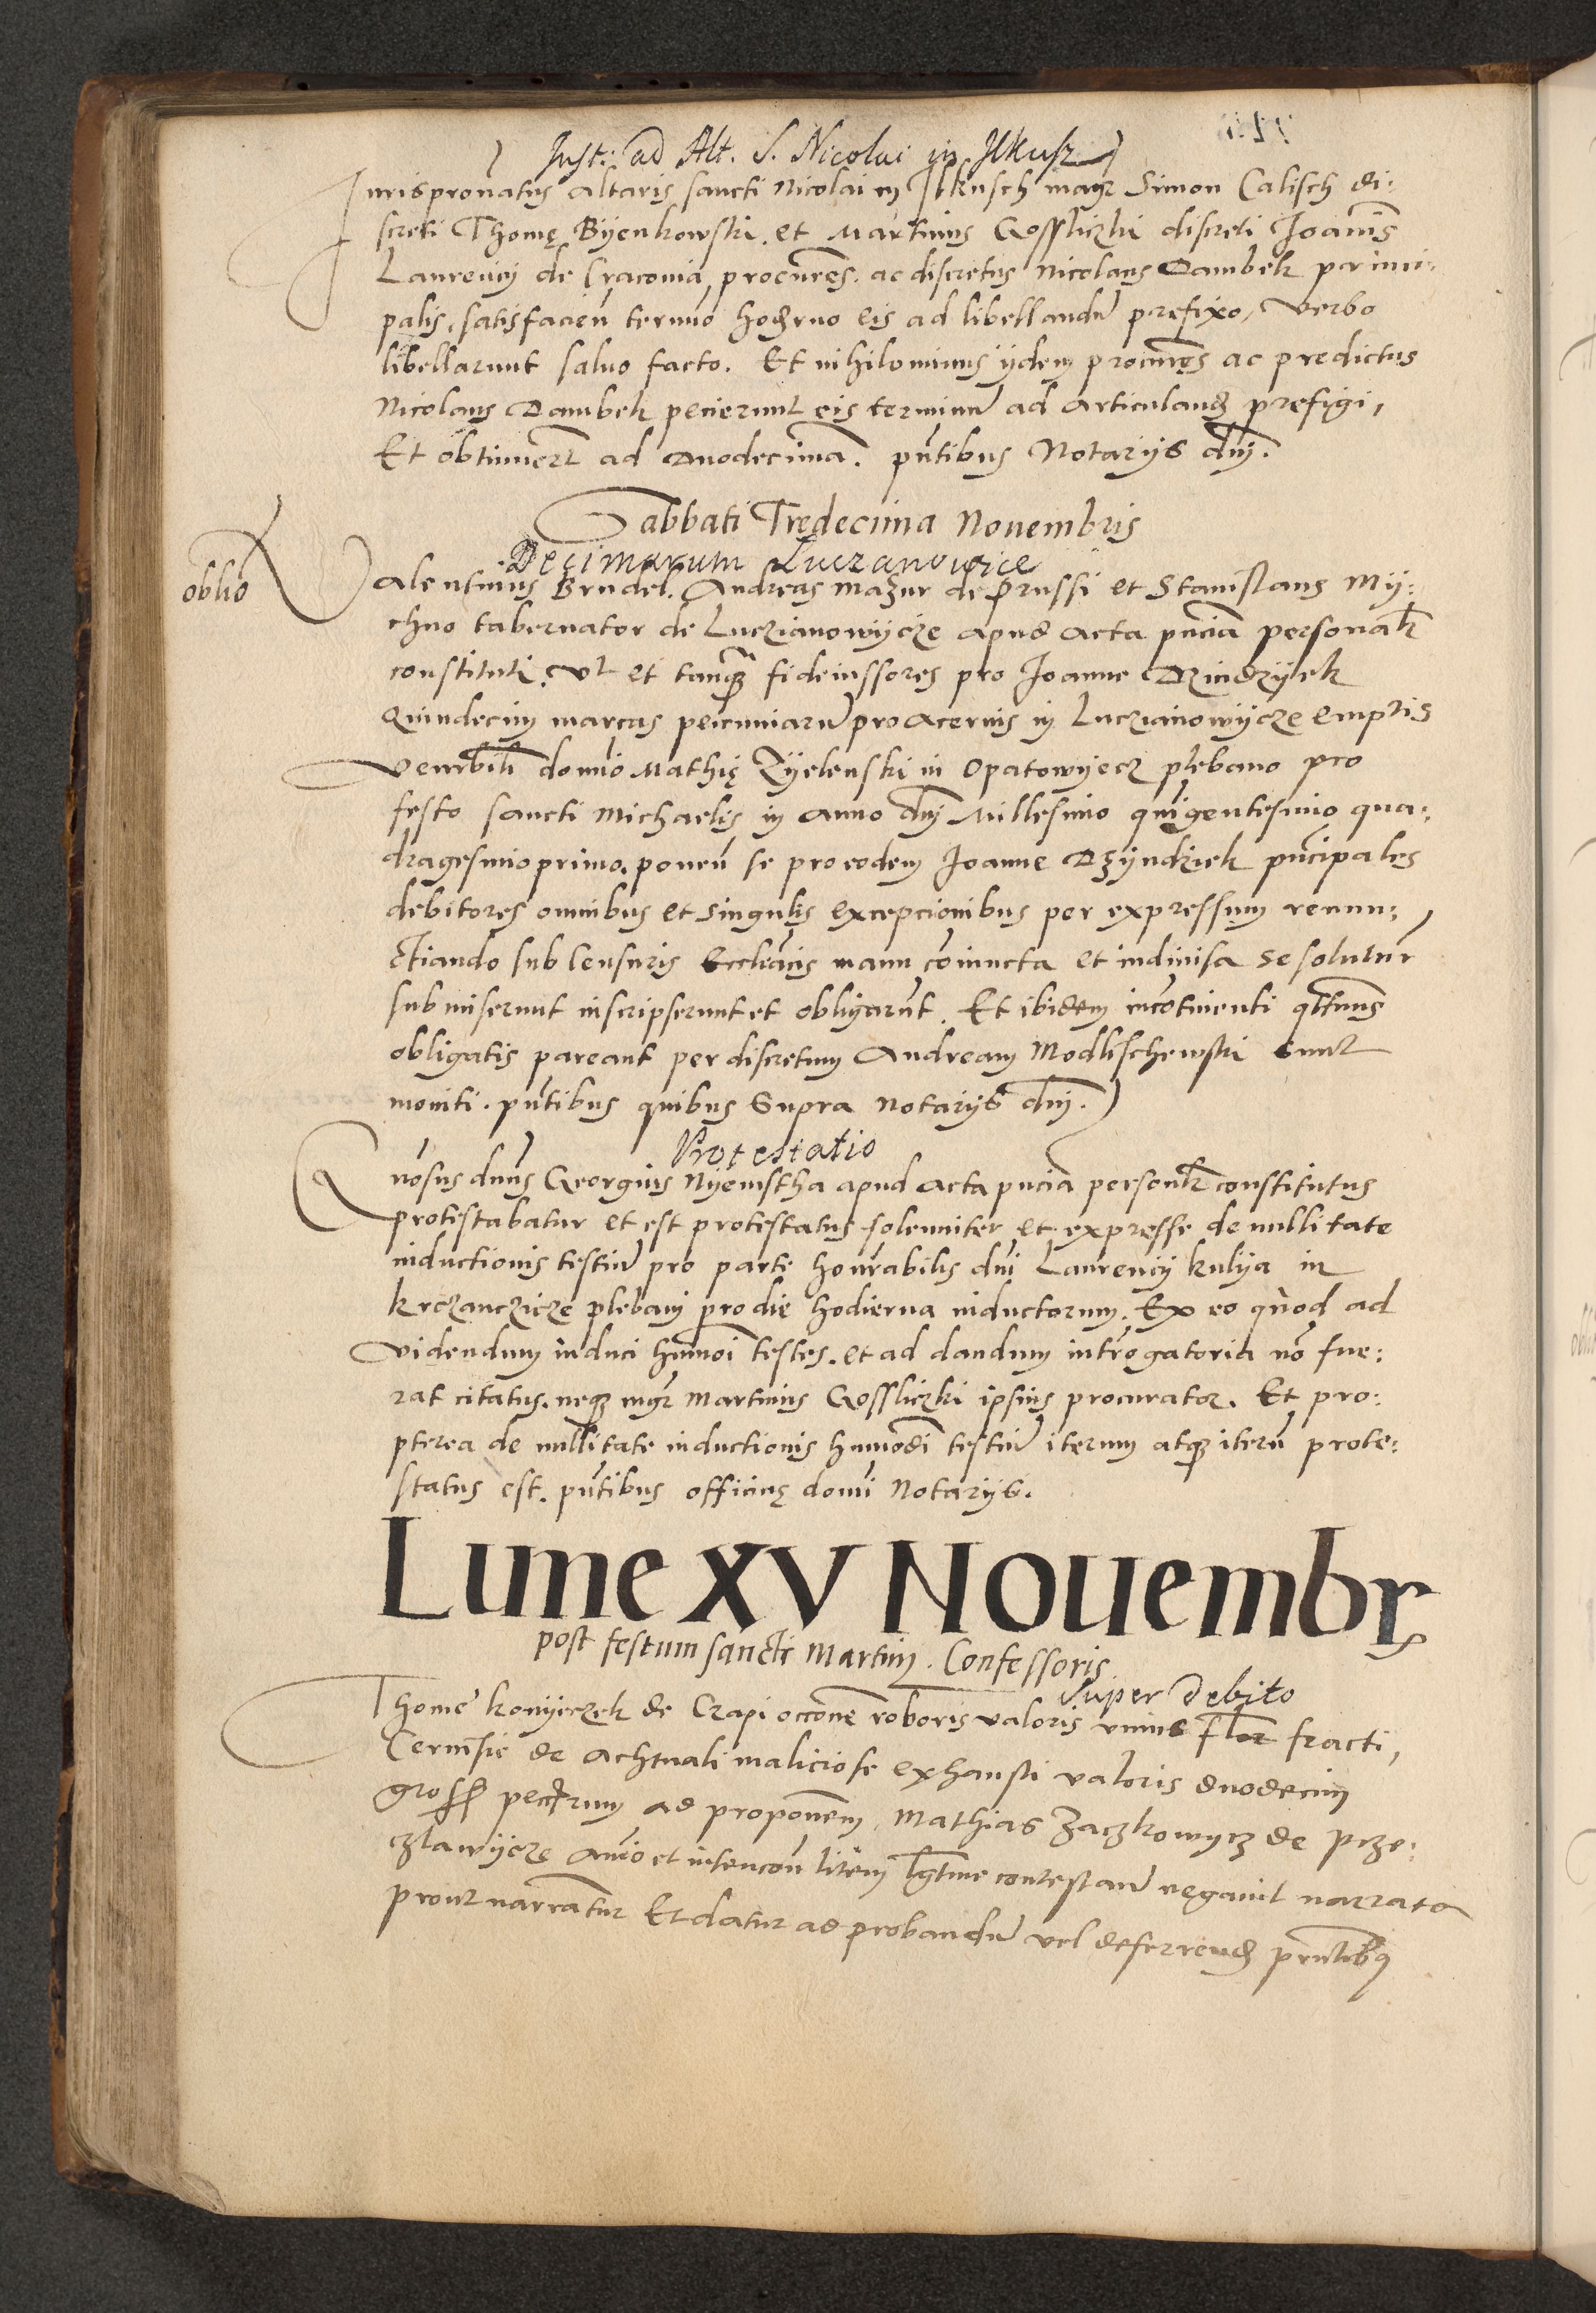 Just: ad Alt. S. Nicolai in Ilkusz
Jurispronatus altaris sancti Nicolai in Ilkusch magr Simon Calisch di:
screti Thomę Byenkowski. et Martinus Gosssliczki discreti Joannis
Laurencij de Cracovia, procures. ac discretus Nicolaus Dambek princi:
palis, satisfacien termino hodierno eis ad libellandum prefixo, verbo
libellarunt salvo facto. Et nihilominus ijdem procures ac predictus
Nicolaus Dambek pecierunt eis terminum ad articuland prefigi,
Et obtinuert ad Duodecima. pntibus Notarijs dnj.
Sabbati Tredecima Novembris
Decimarum Luczanowice
oblio
Valentinus Brudel. Andreas Mazur de Prussi et Stanislaus My:
chno tabernator de Luczianowycze apud acta pncia personalr
constituti. Ut et tanqz fideiussores pro Joanne Dzindzyek
Quindecim marcas pecuniarum pro acervis in Luczianowycze emptis
venerbili domino Mathię Zyelenski in Opatowyecz plebano pro
festo sancti Michaelis in anno dnj Millesimo quigentesimo qua:
dragesimoprimo. ponen se pro eodem Joanne Dzyndziek pncipales
debitores omnibus et singulis excepcionibus per expressum renun:
ctiando sub censuris Ecclticis manu coniuncta et indivisa se soluturr
submiserunt inscripserunt et obligarunt. Et ibidem incontinenti qtenus
obligatis pareant per discretum Andream Modlischewski sunt
moniti. pntibus quibus supra notarijs dnj.
Protestatio
Gnosus dnus Georgius Nyemstha apud acta pncia personalr constitutus
protestabatur et est protestatus solemniter et expresse de nullitate
inductionis testium pro parte honrabilis dni Laurencij Kulya in
Krczanczicze plebani pro die hodierna inductorum. Ex eo quod ad
videndum induci humoi testes. et ad dandum introgatoria no fue:
rat citatus. neqz mgr Martinus Gossliczki ipsius procurator. Et pro:
pterea de nullitate inductionis humodi testium iterum atqz iterum prote:
status est. pntibus officiuę domi Notarijs.
Lune XV Novembr
post festum sancti Martini. Confessoris.
Super debito
Thome Konyeczek de Czapi occone roboris valoris unius flor fracti,
Cervisie de achtuali maliciose exhausti valoris duodecim
gross ad proponem. Mathias Zaczkowycz de Prze:
czlawycze animo et intencon litem lgtime contestan negavit narrata
prout narrantur Et datur ad probandum vel deferrend pntibus